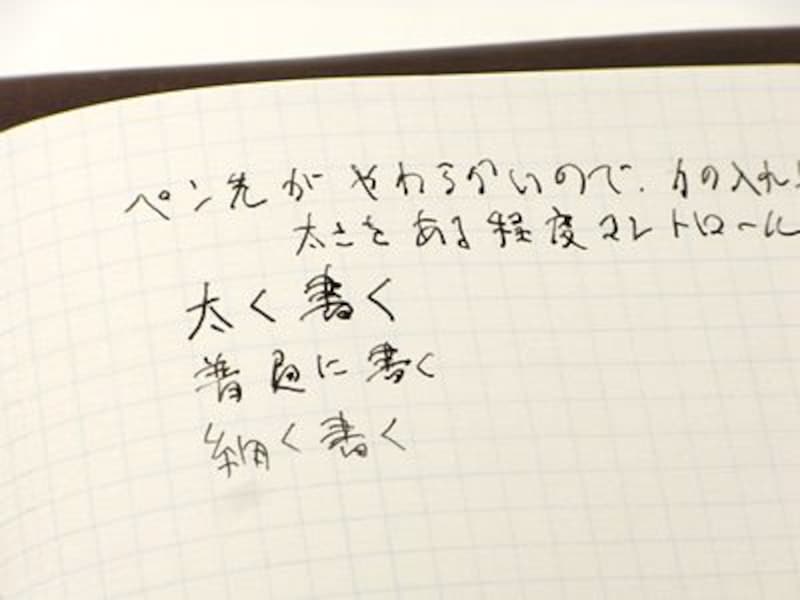 ペン先がやわらかいので、力の入れ
太さをある程度コントロール
太く書く
普通に書く
細く書く